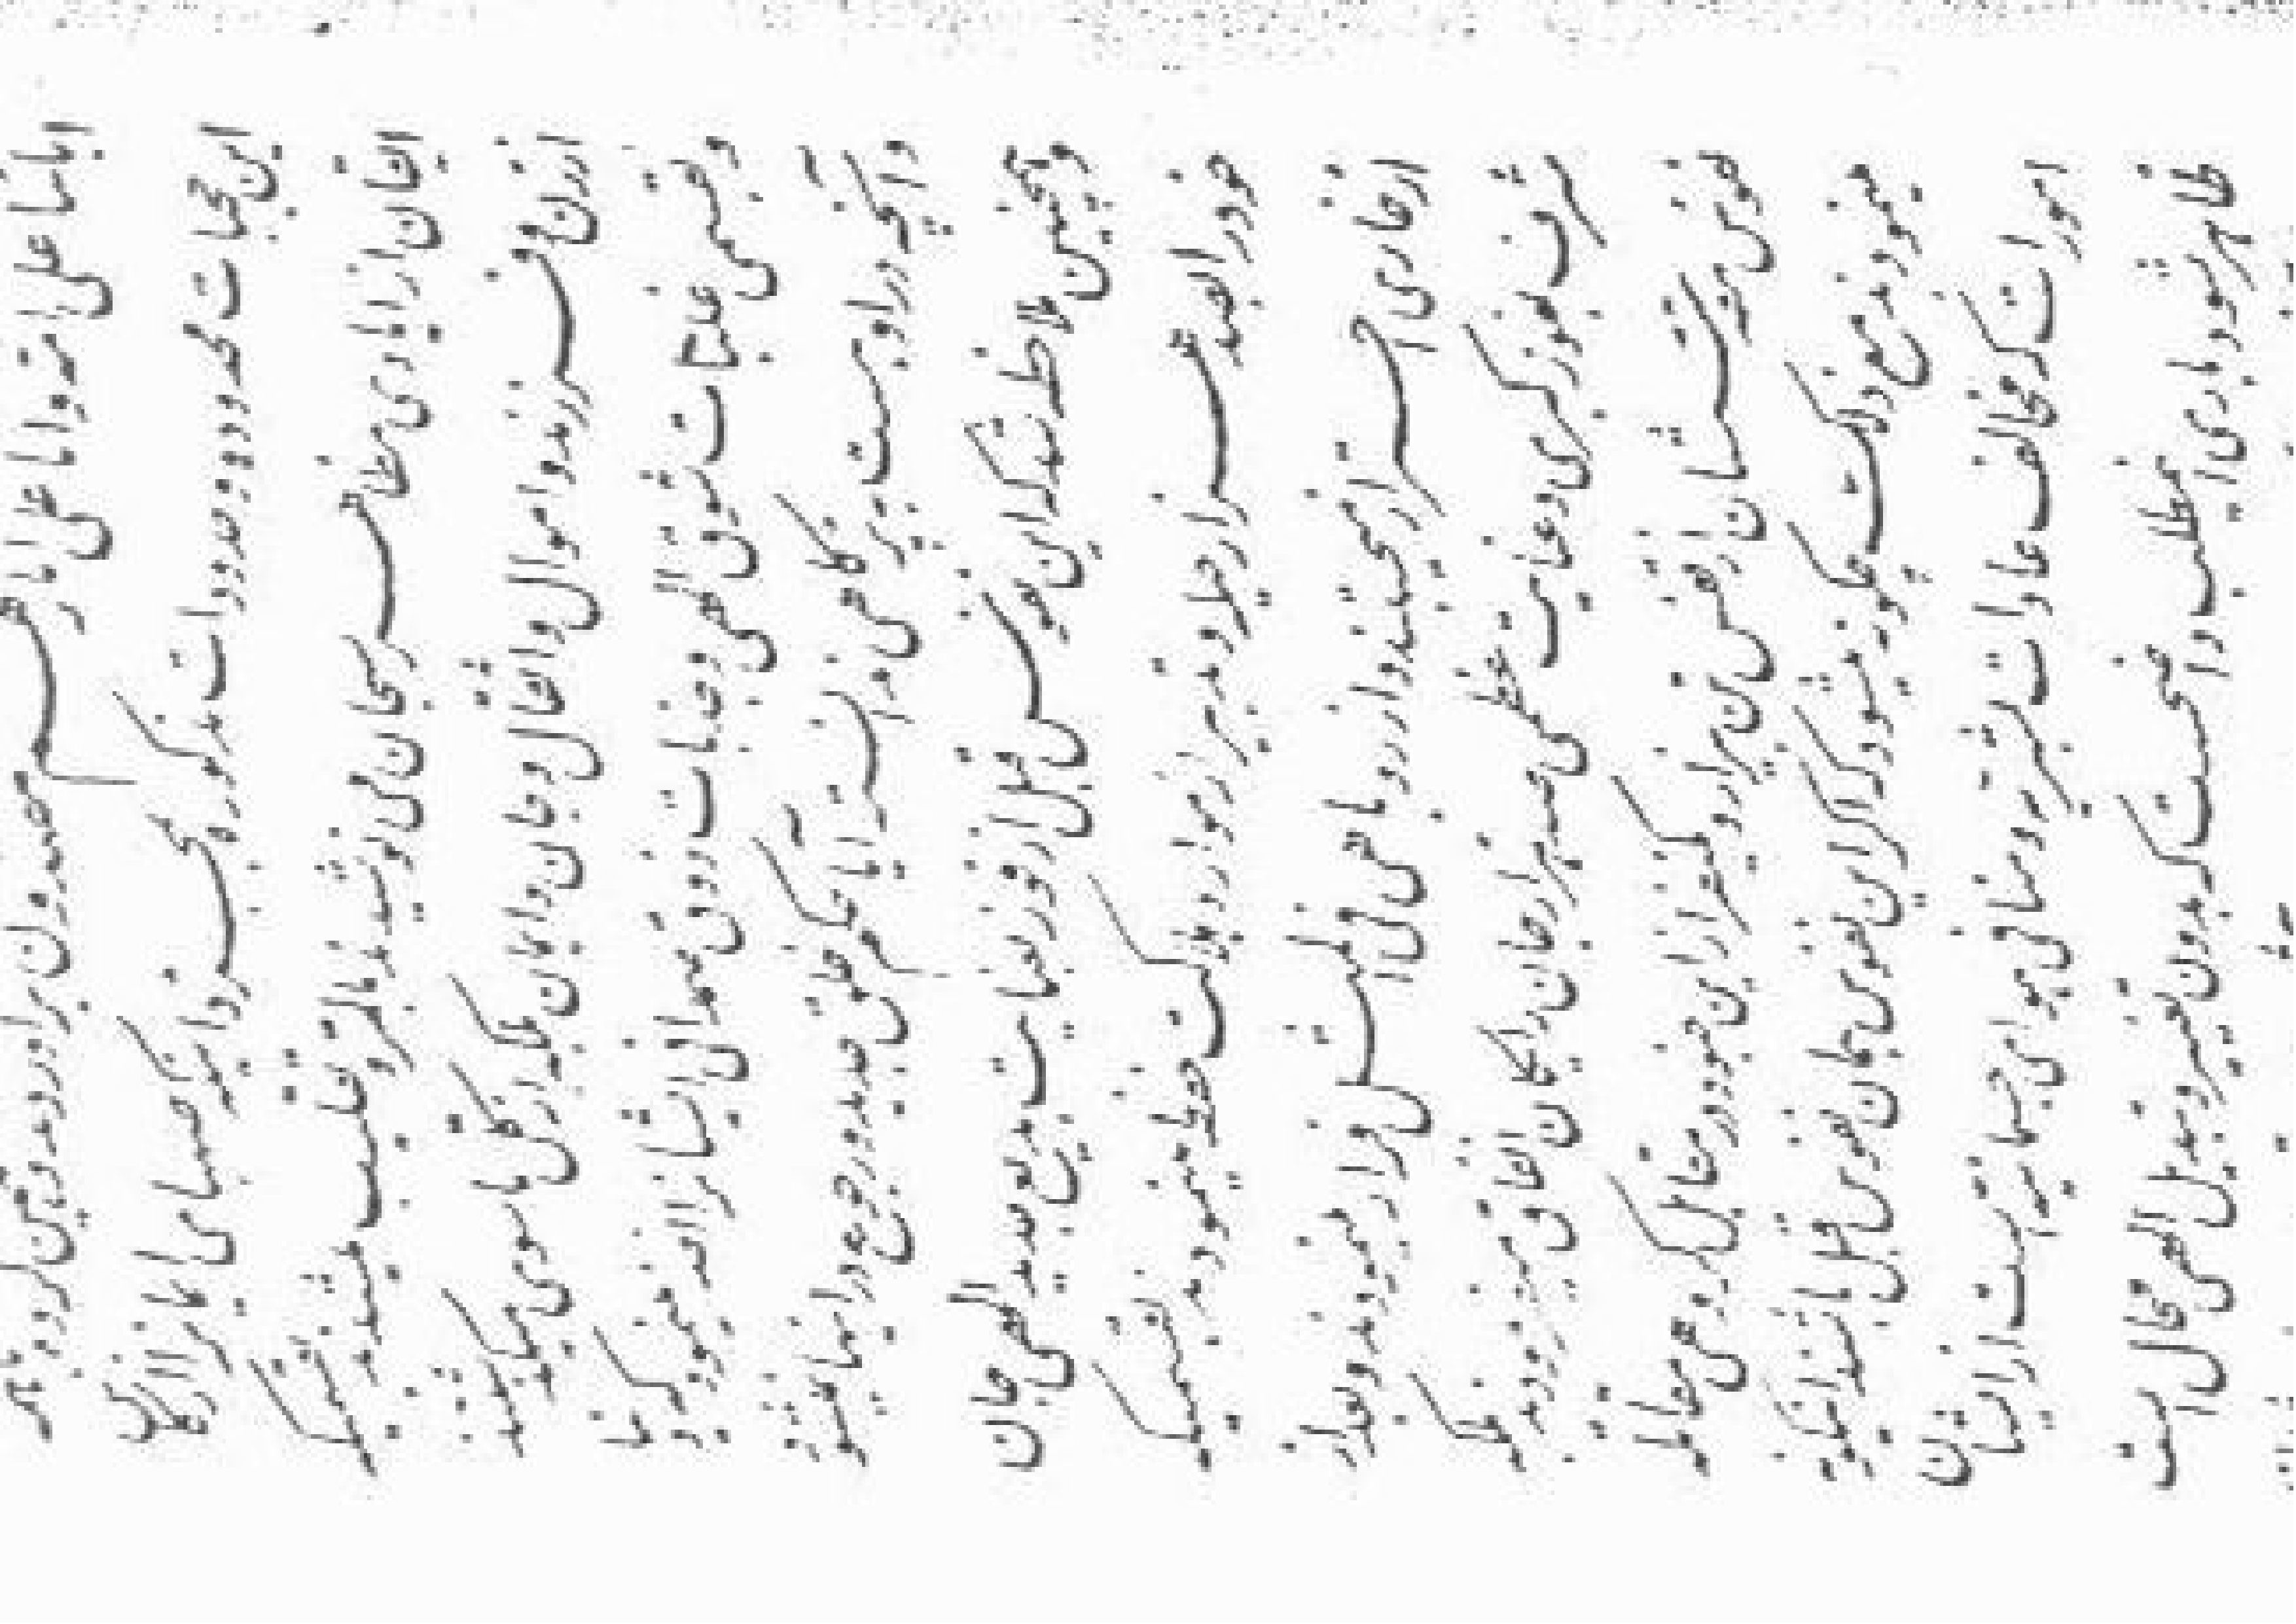 اباءنا علی امة وانا علی اثارهم مهتدون برآوردند و همین گروه با همه
این حجبات محدوده و حدودات مذکوره بمجرد اینکه صهبای ایمانرا از کاس
ایقان از ایادی مظاهر سبحان می نوشیدند بالمره تقلیب میشدند بقسمیکه
از زن و فرزند و اموال و اثقال و جان و ایمان بلکه از کل ما سوی میگذشتند
و بقسمی غلبات شوق الهی و جذبات ذوق صمدانی ایشانرا اخذ مینمود که دنیا
و آنچه در او هست به پر کاهی ندانستند آیا حکم خلق جدید و رجوع در اینها نمیشود
و همچنین ملاحظه شد که این نفوس قبل از فوز بعنایت بدیع جدید الهی جان
خود را بصد هزار حیله و تدبیر از موارد هلاکت حفظ مینمودند بقسمیکه
از خاری احتراز میجستند و از روباهی فی المثل فرار مینمودند و بعد از
شرف بفوز کبری و عنایت عظمی صد هزار جان رایگان انفاق میفرمودند بلکه
نفوس مقدسشان از قفس تن بیزار و یکنفر از این جنود در مقابل گروهی مقاتله
مینمود و مع ذلک چگونه میشود که اگر این نفوس همان نفوس قبل باشند اینگونه
امورات که مخالف عادات بشریه و منافی هوای جسمانیه است از ایشان
ظاهر شود باری این مطلب واضحست که بدون تغییر و تبدیل الهی محال است